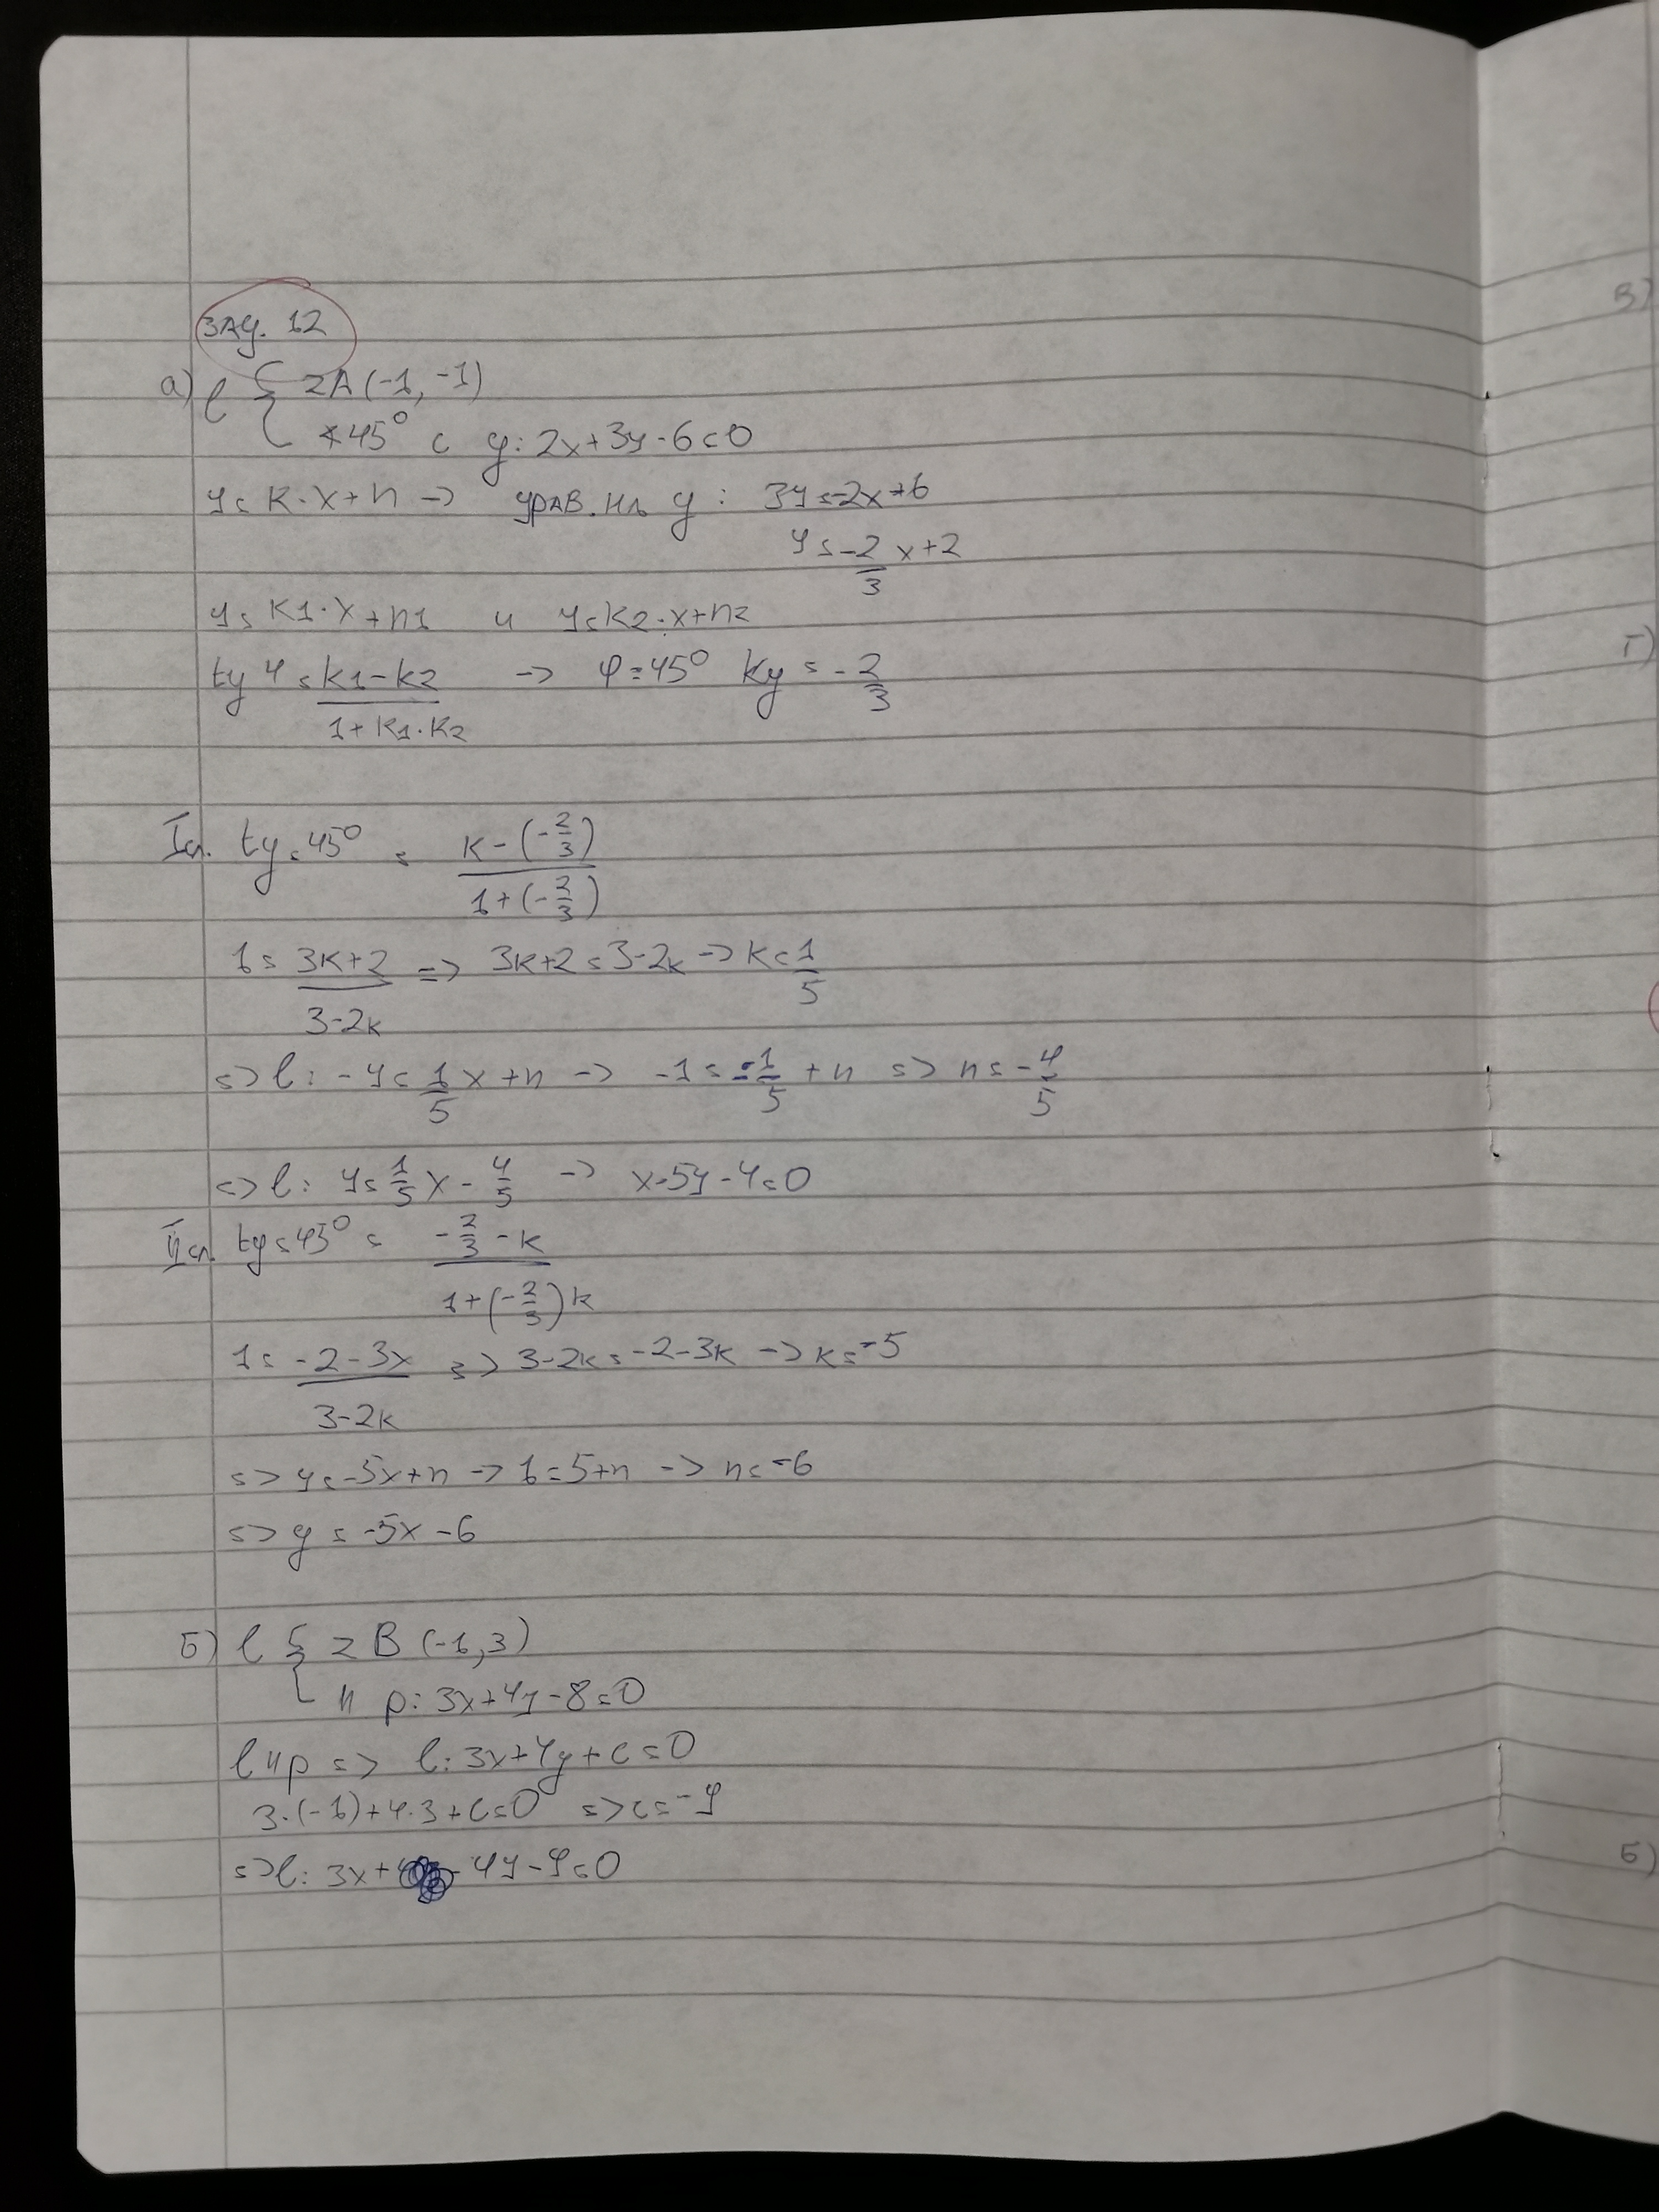 зад. 12
а) l { z A(-1, -1)
∢45° с g: 2x+3y-6=0
y=k.x+n -> урав. на g: 3y=-2x+6
y=-2/3 x+2
y=k1.x+n1 и y=k2.x+n2
tg φ = (k1-k2)/(1+k1.k2) -> φ=45° kg = -2/3
I сл. tg=45° = (k-(-2/3))/(1+(-2/3))
1= (3k+2)/(3-2k) => 3k+2=3-2k -> k=1/5
=> l: -y=1/5 x+n -> -1=-1/5 +n => n=-4/5
=> l: y=1/5 x - 4/5 -> x-5y-4=0
II сл. tg=45° = (-2/3 -k)/(1+(-2/3)k)
1= (-2-3x)/(3-2k) => 3-2k=-2-3k -> k=-5
=> y=-5x+n -> 1=5+n -> n=-6
=> y=-5x-6
Б) l { z B(-1,3)
|| p: 3x+4y-8=0
l || p => l: 3x+4y+c=0
3.(-1)+4.3+c=0 => c=-9
=> l: 3x+ 4y-9=0
в)
г)
Б)